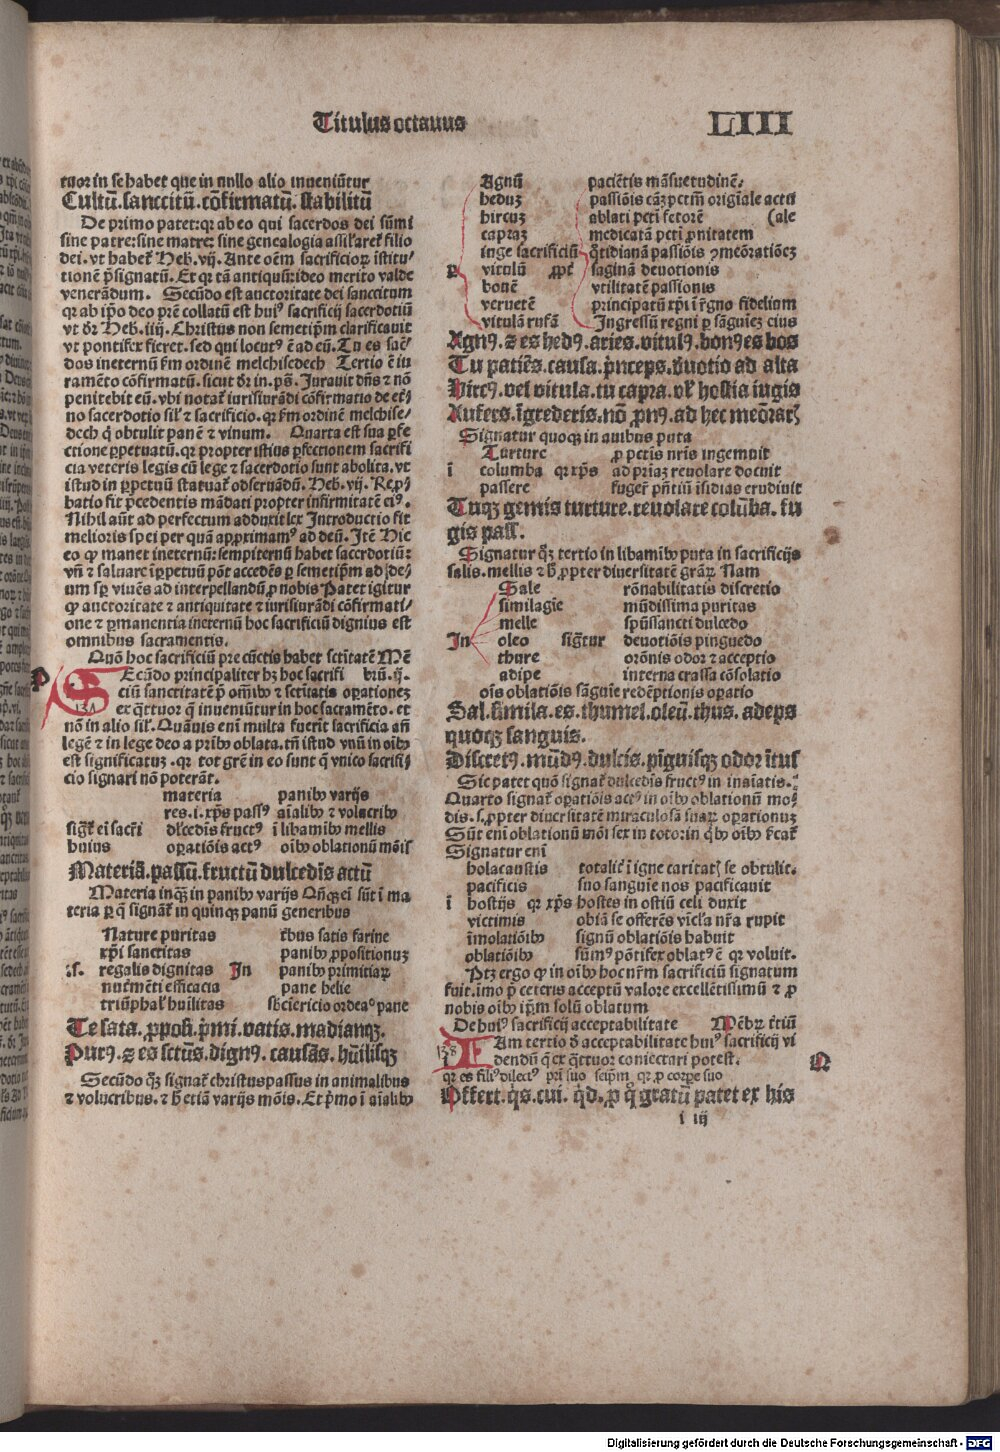 Titulus octauus
LIII
tuor in se habet que in nullo alio inueniūtur
Cultū. sanccitū. cōfirmatū. stabilitū
De primo patet: qꝛ ab eo qui sacerdos dei sūmi
sine patre: sine matre: sine genealogia assilaꝛet filio
dei. vt habet Heb. vij. Ante oēm sacrificioꝝ istitu⸗
tionē p̄signatū. Et qꝛ tā antiquū: ideo merito valde
venerādum. Secūdo est auctoritate dei sanccitum
qꝛ ab ip̄o deo pr̄e collatū est huiꝰ sacrificij sacerdotiū
vt dr̄ Heb. iiij. Christus non semetip̄m clarificauit
vt pontifex fieret. sed qui locutꝰ ē ad eū. Tu es sac̄⸗
dos ineternū s̄m ordinē melchisedech Tertio ē iu
ramēto cōfirmatū. sicut dr̄ in. ps̄. Jurauit dn̄s ⁊ nō
penitebit eū. vbi notat̄ iurisiurādi cōfirmatio de et̄⸗
no sacerdotio sil̄ ⁊ sacrificio. qꝛ s̄m ordinē melchise⸗
dech q̇ obtulit panē ⁊ vinum. Quarta est sua ꝑfe
ctione ꝑpetuatū. qꝛ propter istius ꝑfectionem sacrifi
cia veteris legis cū lege ⁊ sacerdotio sunt abolita. vt
istud in ꝑpetuū statuat̄ obseruādū. Heb. vij. Repꝛo
batio fit p̄cedentis mādati propter infirmitatē eiꝰ.
Nihil aūt ad perfectum adduxit lex Introductio fit
melioris spei per quā appꝛoximamꝰ ad deū. Itē Hic
eo ꝙ manet ineternū: sempiternū habet sacerdotiū:
vn̄ ⁊ saluare īꝑpetuū pōt accedēs ꝑ semetip̄m ad de⸗
um sꝑ viuēs ad interpellandū ꝓ nobis Patet igitur
ꝙ auctoritate ⁊ antiquitate ⁊ iurisiurādi cōfirmati⸗
one ⁊ ꝑmanentia ineternū hoc sacrificiū dignius est
omnibus sacramentis.
Quō hoc sacrificiū pre cūctis habet sctītatē Mē
SEcūdo principaliter hꝫ hoc sacrifi brū. ij.
ciū sanctitatē p̄ om̄ibꝰ ⁊ sctītatis oꝑationez
ex q̄ttuor q̄ inueniūtur in hoc sacramēto. et
nō in alio sil̄. Quāuis eni multa fuerīt sacrificia an̄
legē ⁊ in lege deo a prībꝰ oblata. tn̄ istud vnū in oībꝰ
est significatuꝫ. qꝛ tot gr̄e in eo sunt q̄ vnico sacrifi⸗
cio signari nō poterāt.
materia panibꝰ varijs
res. i. xp̄s passꝰ aīalibꝰ ⁊ volucribꝰ
sigt̄ ei sacri dl̄cedis fructꝰ ī libamībꝰ mellis
huius oꝑatiōis actꝰ oībꝰ oblationū mōis
Materiā. passū. fructū dulcedis actū
Materia inqꝫ in panibꝰ varijs Qn̄qꝫ ei sūt ī ma
teria ꝑ q̄ signāt̄ in quinqꝫ panū generibus
Nature puritas tribus satis farine
xp̄i sanctitas panibꝰ ꝓpositionuꝫ
:s. regalis dignitas In panibꝰ primitiaꝝ
nutmēti efficacia pane helie
triūphal̄ huilitas sb̄cinericio ordeaᵒ pane
Te sata. ꝓposi. p̄mi. vatis. madianqꝫ.
Purꝰ. ⁊ es sctūs. dignꝰ. causās. hūilisqꝫ
Secūdo qꝫ signat̄ christus passus in animalibus
⁊ volucribus. ⁊ h̄ etiā varijs mōis. Et p̄mo ī aīalibꝰ
138
Agnū paciētis māsuetudinē.
heduꝫ passiōis cāꝫ pctm̄ origiale actū
hircuꝫ ablati pcti fetorē (ale
capraꝫ medicatā pcti ꝓnitatem
inge sacrificiū q̄tidianā passiōis ꝯmeōratiōeꝫ
ꝑ vitulū ꝓpt̄ saginā deuotionis
bouē vtilitatē passionis
veruetē principatū xp̄i i regno fidelium
vitulā rufā Ingressū regni ꝑ sāguīeꝫ eius
Agnꝰ. ⁊ es hedꝰ. aries. vitulꝰ. bonꝰ es bos
Tu patiēs. causa. p̄nceps. duotio ad alta
Hircꝰ. vel vitula. tu capra. vl̄ hostia iugis
Aufers. īgrederis. nō ꝓnꝰ. ad hec meōraꝛs
Signatur quoqꝫ in auibus puta
Turture ꝓ pctis nr̄is ingemuit
ī columba qꝛ xp̄s ad pr̄iaꝫ reuolare docuit
passere fuger̄ pn̄tiū īsidias erudiuit
Tuqꝫ gemis turture. reuolare colūba. fu
gis pass.
Signatur qꝫ tertio in libamībꝰ puta in sacrificijs
salis. mellis ⁊ h̄ ꝓpter diuersitatē grāꝝ Nam
Sale rōnabilitatis discretio
similagie mūdissima puritas
melle spūssancti dulcedo
In oleo sigt̄ur deuotiōis pinguedo
thure orōnis odor ⁊ acceptio
adipe interna crassa cōsolatio
oīs oblatiōis sāguīe redēptionis oꝑatio
Sal. simila. es. thumel. oleū. thus. adeps
quoqꝫ sanguis.
Discretꝰ. mūdꝰ. dulcis. pīguisqꝫ odor ītus
Sic patet quō signat̄ dulcedis fructꝰ in inaīatis.
Quarto signat̄ oꝑatiōis actꝰ in oībꝰ oblationū mo⸗
dis. s. ꝓpter diuersitatē miraculosā suaꝝ oꝑationuꝫ
Sūt eni oblationū mōi sex in toto: in q̇bꝰ oībꝰ
Signatur eni
holacaustis totalit̄ ī igne caritatꝭ se obtulit.
pacificis suo sanguie nos pacificauit
ī hostijs qꝛ xp̄s hostes in ostiū celi duxit
victimis obiā se offerēs vīcla nr̄a rupit
īmolatiōibꝰ signū oblatiōis habuit
oblatiōibꝰ sūmꝰ pōtifex oblatꝰ ē qꝛ voluit.
Ptꝫ ergo ꝙ in oībꝰ hoc nr̄m sacrificiū signatum
fuit. īmo p̄ ceteris acceptū valore excellētissimū ⁊ ꝓ
nobis oībꝰ ip̄m solū oblatum
De huiꝰ sacrificij acceptabilitate Mēbꝝ t̄tiū
138
IAm tertio d̄ acceptabilitate huiꝰ sacrificij vi
dendū q̄ ex q̄ttuor coniectari potest.
qꝛ es filiꝰ dilectꝰ pr̄i suo seip̄m qꝛ ꝓ corꝑe suo
Offert. q̇s. cui. q̇d. ꝓ q̇ gratū patet ex his
i iij
Digitalisierung gefördert durch die Deutsche Forschungsgemeinschaft - DFG